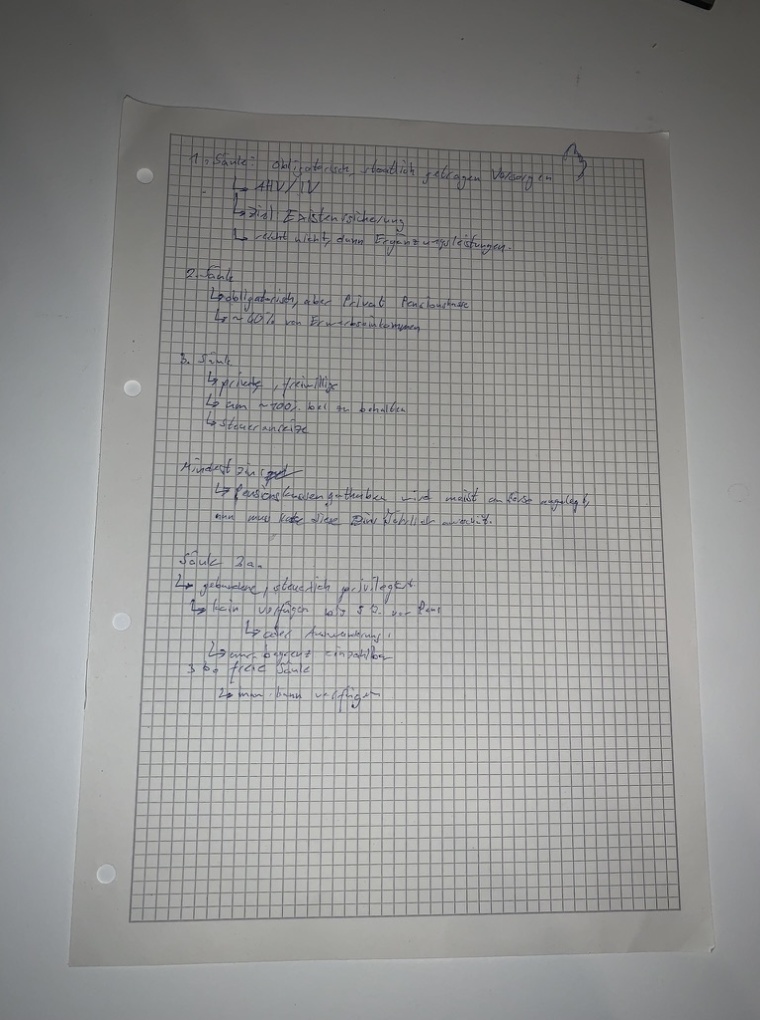 1. Säule: obligatorisch, staatlich getragen Vorsorgen
↳ AHV/IV
↳ Ziel Existenzsicherung
↳ reicht nicht, dann Ergänzungsleistungen.
2. Säule
↳ obligatorisch, aber Privat Pensionskasse
↳ ~60% von Erwerbseinkommen
3. Säule
↳ private, freiwillige
↳ um ~100% bei zu behalten
↳ Steueranreize
Mindestzins
↳ Pensionskassenguthaben wird meist an angelegt,
man muss diese Zins Jährlich
Säule 3a.
↳ gebundene, steuerlich privilegiert
↳ kein verfügen bis 5 J. vor
↳ oder
↳ nur begrenz einzahlbar
3 b. freie Säule
↳ man kann verfügen